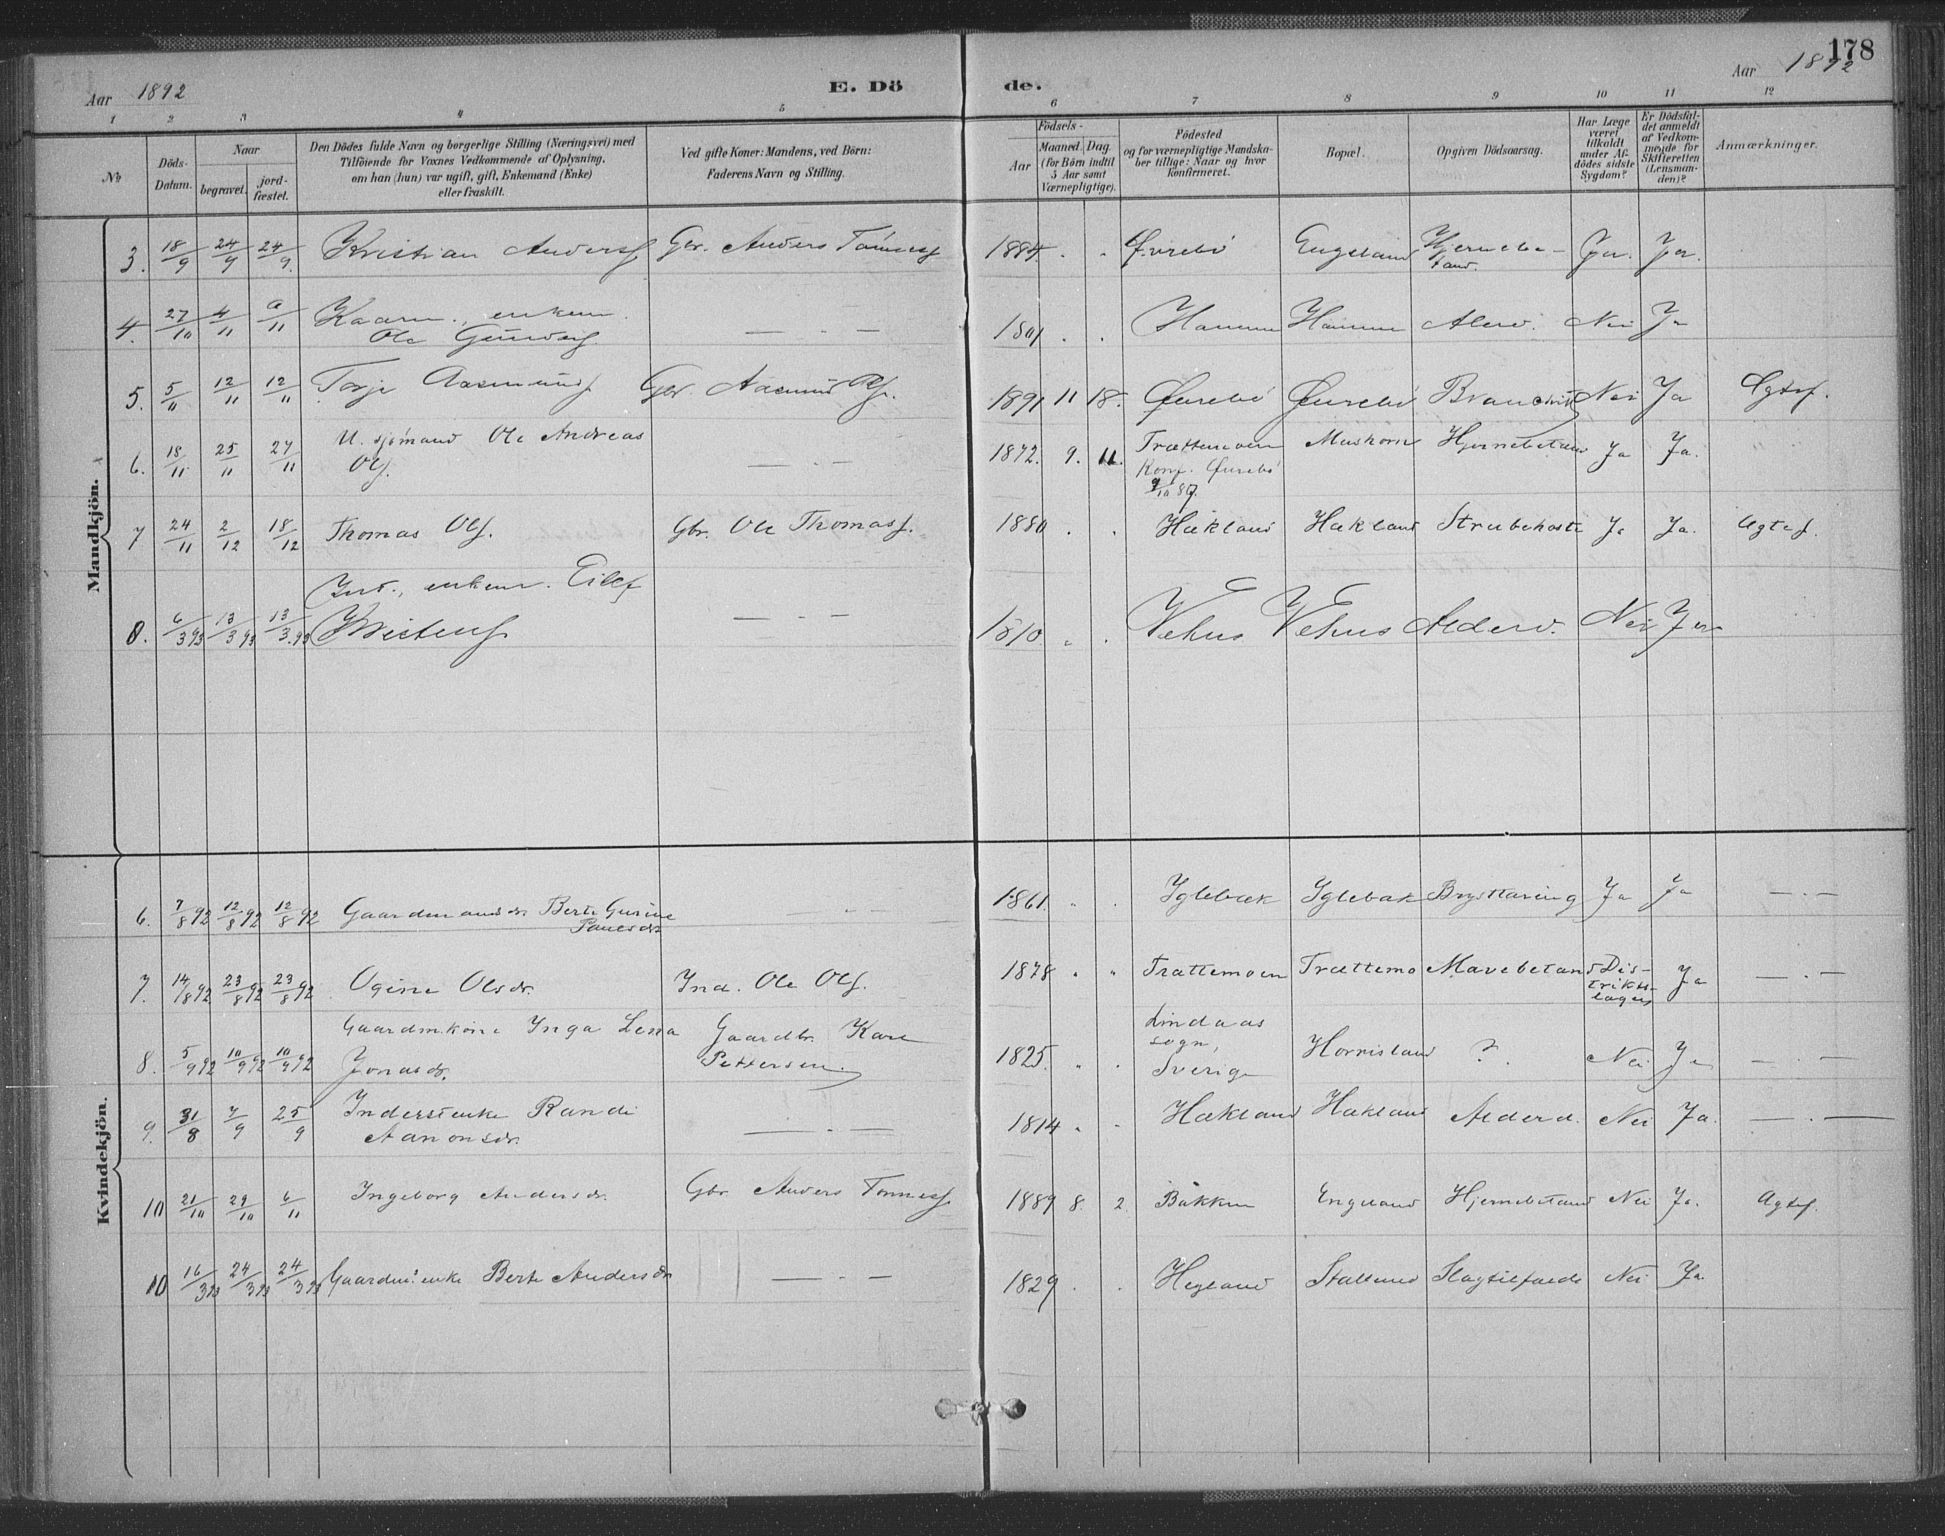 178
Aar 1892 E. Dö de. Aar 1892
1 2 3 4 5 6 7 8 9 10 11 12
No
Döds-Datum.
Naar
begravet.
jord-fæstet.
Den Dödes fulde Navn og borgerlige Stilling (Næringsvei) med
Tilföiende for Voxnes Vedkommende af Oplysning,
om han (hun) var ugift, gift, Enkemand (Enke)
eller fraskilt.
Ved gifte Koner: Mandens, ved Börn:
Faderens Navn og Stilling.
Födsels-
Aar
Maaned. Dag.
(for Börn indtil
5 Aar samt
Værnepligtige).
Födested
og for værnepligtige Mandska-
ber tillige: Naar og hvor
konfirmeret.
Bopæl.
Opgiven Dödsaarsag.
Har Læge
været
tilkaldt
under Af-
dödes sidste
Sygdom?
Er Dödsfal-
det anmeldt
af Vedkom-
mende for
Skifteretten
(Lensman-
den)?
Anmærkninger.
Mandkjön.
3. 18/9 24/9 24/9. Kristian Andersf Gbr. Anders Tönnesf 1884. Øvrebö Engeland Hjernebe-
tænd. Ja. Ja.
4. 27/10 4/11 /11 Kaarm., enkem.
Ole — . — 1801 . . Hamme Hamme Alderd. Nei Ja
5. 5/11 12/11 12/11 Torje Aasmundsf Gbr. Aasmund Olf. 1891 11 18. Øvrebö Øvrebö Nei Ja Ægtef.
6. 18/11 25/11 27/11 U. sjömand Ole Andreas
Olf. — . — 1872. 9. 11. Trættemoen
Konf. Øvrebö
9/10 87. Muskorn Hjernebetænd Ja Ja.
7 24/11 2/12 18/12 Thomas Olf. Gbr. Ole Thomasf. 1880 . . Hækland Hækland Strubehoste Ja Ja. Ægtef.
8. 6/3 93 13/3 93 13/3.93 Ind., enkem. Eilef
Kristensf — . — 1810. „ . Vehus Vehus Alderd. Nei Ja
Kvindekjön.
6. 7/8 92 12/8 92 12/8 92 Gaardmandsdr. Berte Gurine
Paulsdr — . — 1861. „ . Iglebæk Iglebæk Brystkaring Ja Ja — . —
7. 14/8 92 23/8 92 23/8 92 Ogine Olsdr. Ind. Ole Olf. 1878 „ „ Trættemoen Trættemo Mavebetænd Dis-
trikts-
lægen Ja — . —
8. 5/9 92 10/9 92 10/9 92 Gaardm.kone Inga Lena
Jonasdr. Gaardbr. Karl
Pettersen. 1825. „ . Lindaas
sogn,
Sverige Hornisland ? Nei Ja — . —
9. 31/8 7/9 25/9 Inderstenke Rande
Aanonsdr. — . — 1814 „ . Hækland Hækland Alderd. Nei Ja. — . —
10 21/10 29/10 6/11 Ingeborg Andersdr. Gbr. Anders Tönnesf 1889 8. 2. Bakken Engeland Hjernebetænd Nei Ja. Ægtef.
10 16/3 93 24/3 93 24/3 93 Gaardm.enke Berte Andersdr — . — 1829 . . Hegland Slagtilfælde Nei Ja